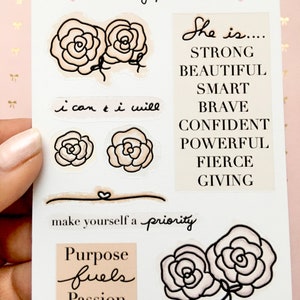 She is....
STRONG
BEAUTIFUL
SMART
BRAVE
CONFIDENT
POWERFUL
FIERCE
GIVING
i can & i will
make yourself a priority
Purpose
fuels
Passion